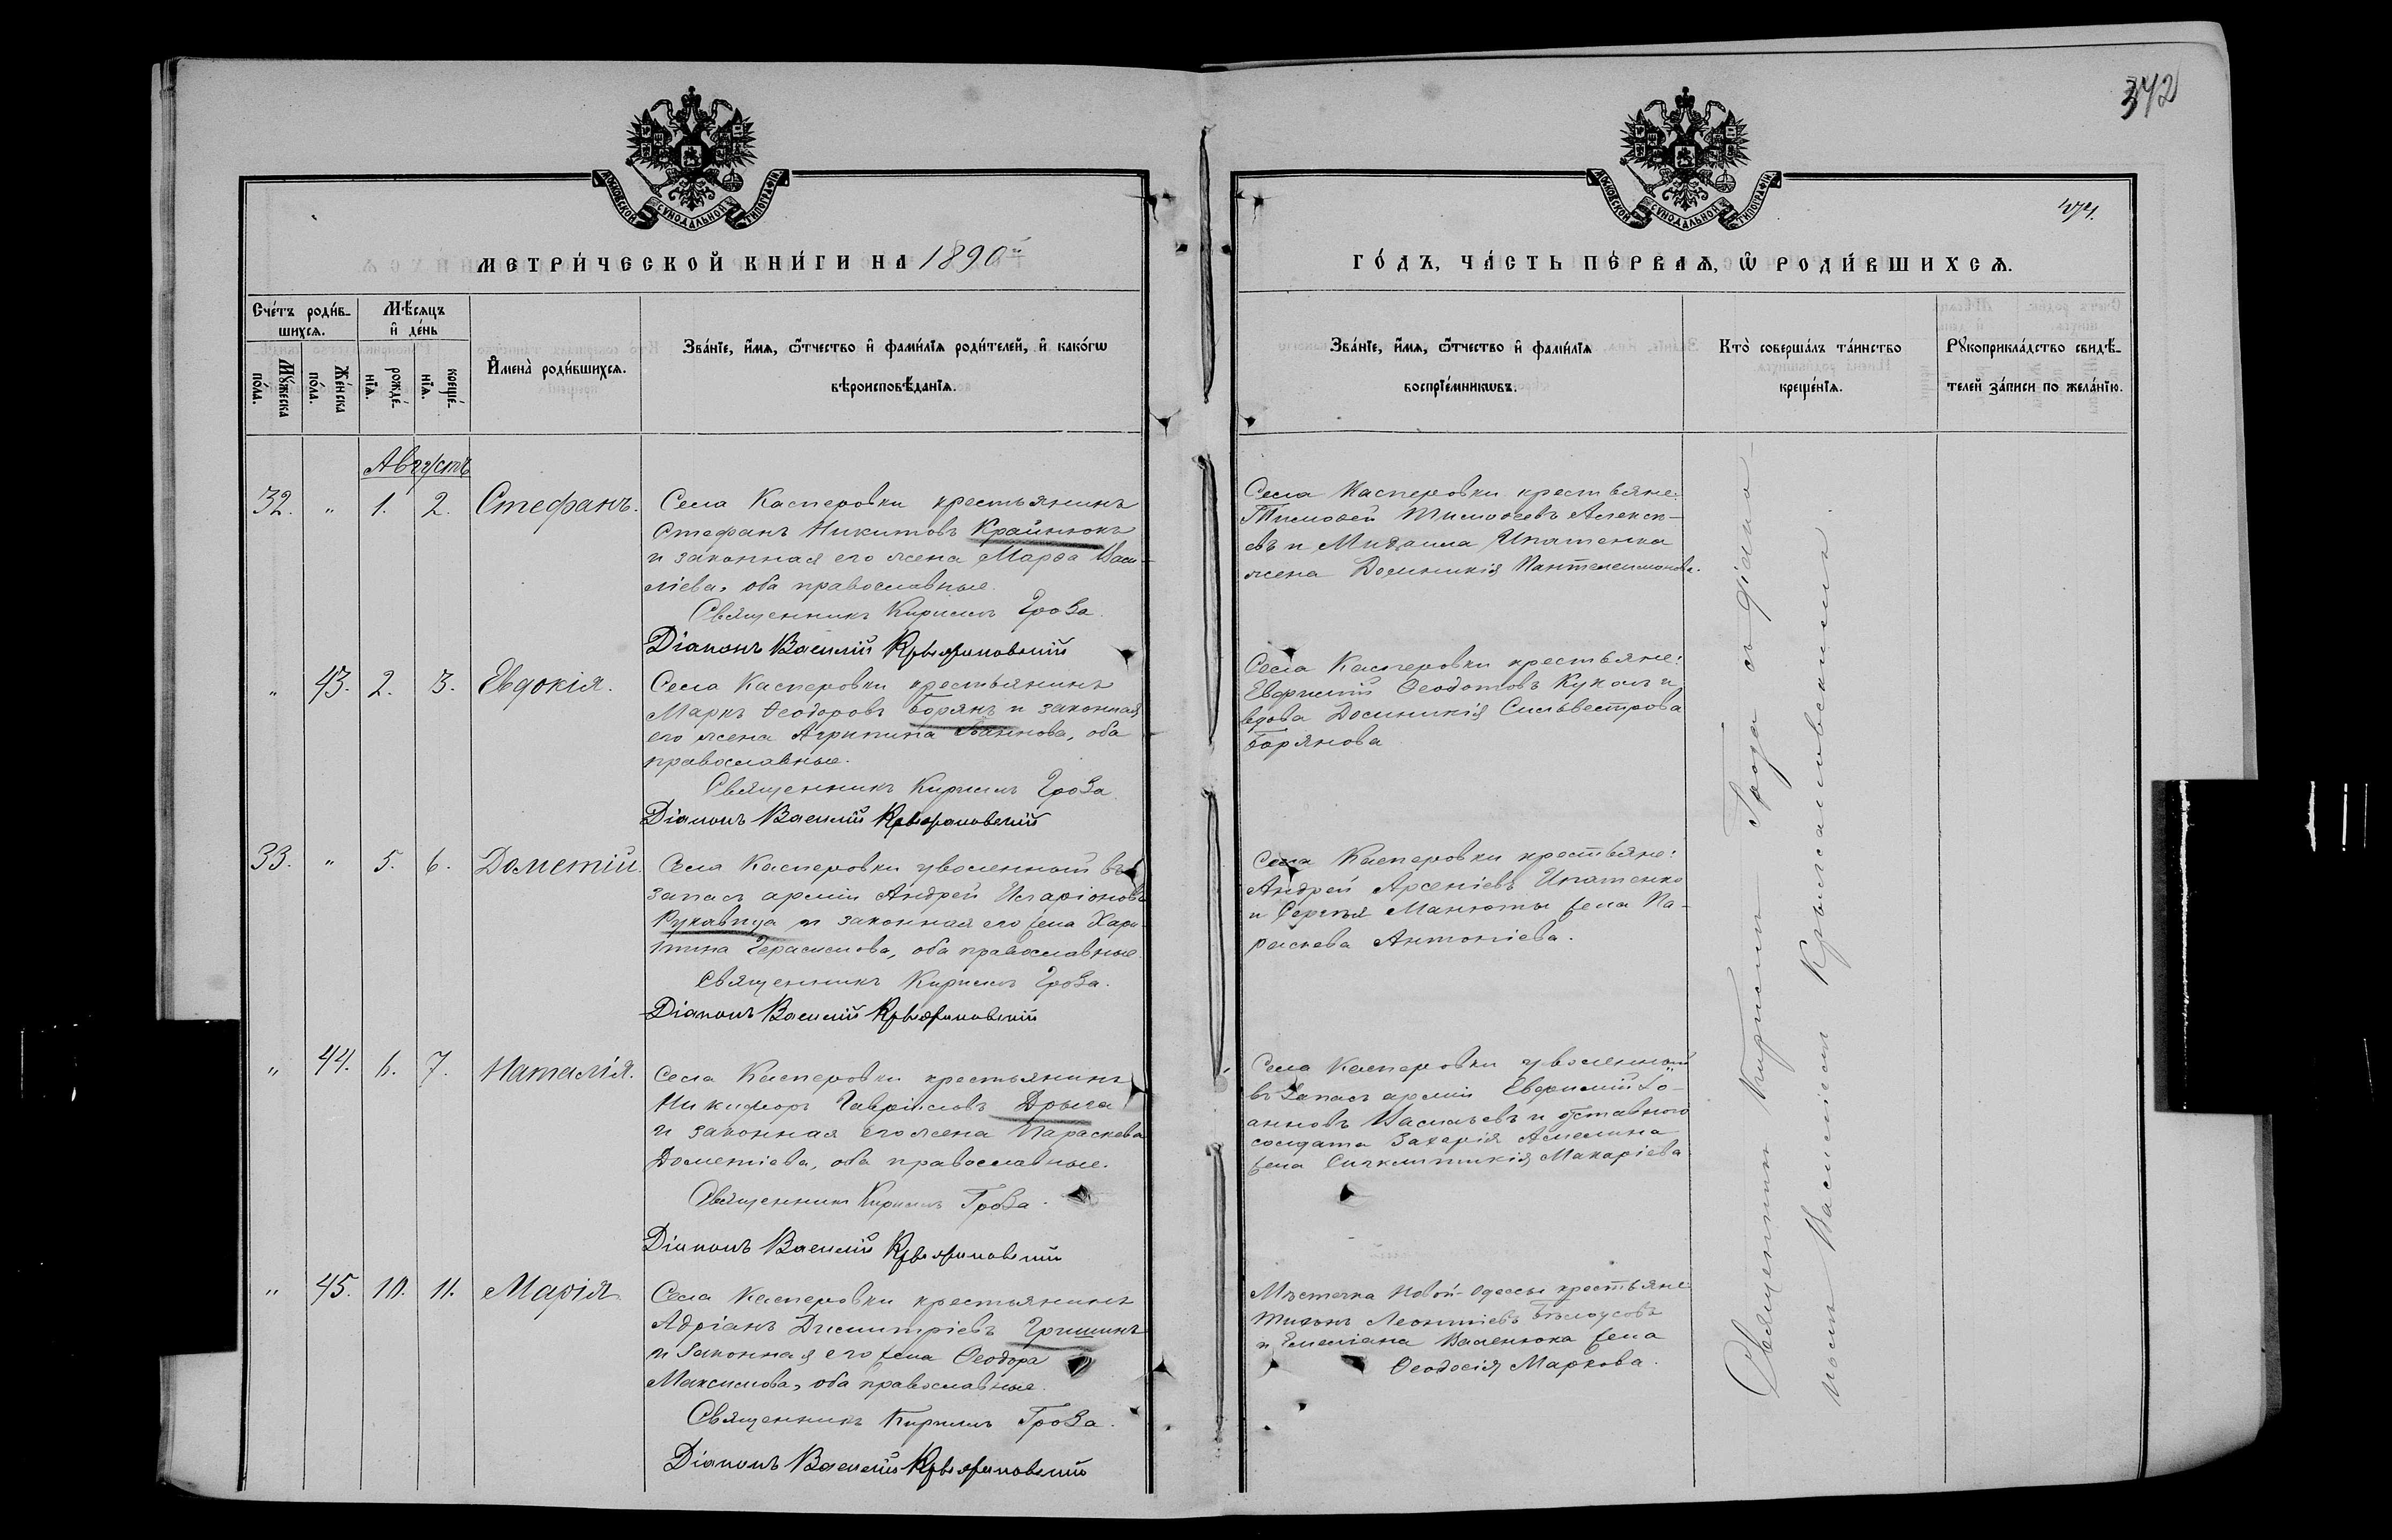 342
МОСКОВСКОЙ СѴНОДАЛЬНОЙ ТИПОГРАФІИ
МОСКОВСКОЙ СѴНОДАЛЬНОЙ ТИПОГРАФІИ
МЕТРИ́ЧЕСКОЙ КНИ́ГИ НА 1890й
ГО́ДЪ, ЧА́СТЬ ПЕ́РВАѦ, Ѡ҆ РОДИ́ВШИХСѦ.
Сче́тъ роди́в-
шихсѧ.
Мꙋ́жеска по́ла.
Же́нска по́ла.
Мѣ́сѧцъ
и҆ де́нь
рожде́-
нїѧ.
креще́-
нїѧ.
И҆мена̀ роди́вшихсѧ.
Зва́нїе, и҆́мѧ, ѻ҆́тчество и҆ фами́лїѧ роди́телей, и҆ како́гѡ
вѣроисповѣ́данїѧ.
Зва́нїе, и҆́мѧ, ѻ҆́тчество и҆ фами́лїѧ
воспрїе́мникѡвъ.
Кто̀ соверша́лъ та́инство
креще́нїѧ.
Рꙋкоприкла́дство свидѣ́-
телей за́писи по жела́нїю.
Августъ
32. " 1. 2. Стефанъ.
Села Касперовки крестьянинъ
Стефанъ Никитовъ Крайнюкъ
и законная его жена Марѳа Васи-
ліева, оба православные.
Священникъ Кириллъ Гроза.
Діаконъ Василій Крыжановскій
Села Касперовки крестьяне:
Тимоѳей Тимоѳеевъ Алексе-
евъ и Михаила Ипатенка
жена Домникія Пантелеимонова.
" 43. 2. 3. Евдокія.
Села Касперовки крестьянинъ
Маркъ Ѳеодоровъ Борянъ и законная
его жена Агрипина Іоаннова, оба
православные.
Священникъ Кириллъ Гроза
Діаконъ Василій Крыжановскій
Села Касперовки крестьяне:
Евфимій Ѳеодотовъ и
вдова Домникія Сильвестрова
Борянова
33. " 5. 6. Дометій.
Села Касперовки уволенный въ
запасъ арміи Андрей Иларіоновъ
Рукавица и законная его жена Хари-
тина Герасимова, оба православные.
Священникъ Кириллъ Гроза.
Діаконъ Василій Крыжановскій
Села Касперовки крестьяне:
Андрей Арсеніевъ Ипатенко
и Сергѣя Манюты жена Па-
раскева Антоніева.
" 44. 6. 7. Наталія.
Села Касперовки крестьянинъ
Никифоръ Гавріиловъ Дрыга
и законная его жена Параскева
Дометіева, оба православные.
Священникъ Кириллъ Гроза.
Діаконъ Василій Крыжановскій
Села Касперовки уволенный
въ запасъ арміи Евфимій Іо-
анновъ Васильевъ и отставного
солдата Захарія Амелина
жена Синклитикія Макаріева
" 45. 10. 11. Марія.
Села Касперовки крестьянинъ
Адріанъ Димитріевъ Гришинъ
и законная его жена Ѳеодора
Максимова, оба православные.
Священникъ Кириллъ Гроза.
Діаконъ Василій Крыжановскій
Мѣстечка Новой-Одессы крестьяне:
Тихонъ Леонтіевъ Бѣлоусовъ
и Емеліана Валенюка жена
Ѳеодосія Маркова.
Священникъ Кириллъ Гроза съ діако-
номъ Василіемъ Крыжановскимъ.